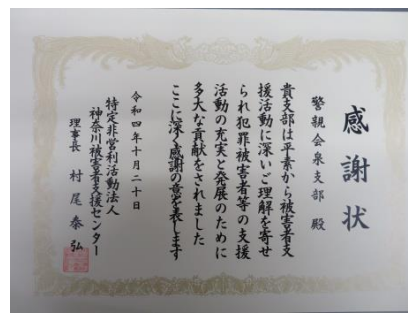 感謝状
警親会泉支部 殿
貴支部は平素から被害者支
援活動に深いご理解を寄せ
られ犯罪被害者等の支援
活動の充実と発展のために
多大な貢献をされました
ここに深く感謝の意を表します
令和四年十月二十日
特定非営利活動法人
神奈川被害者支援センター
理事長 村尾泰弘